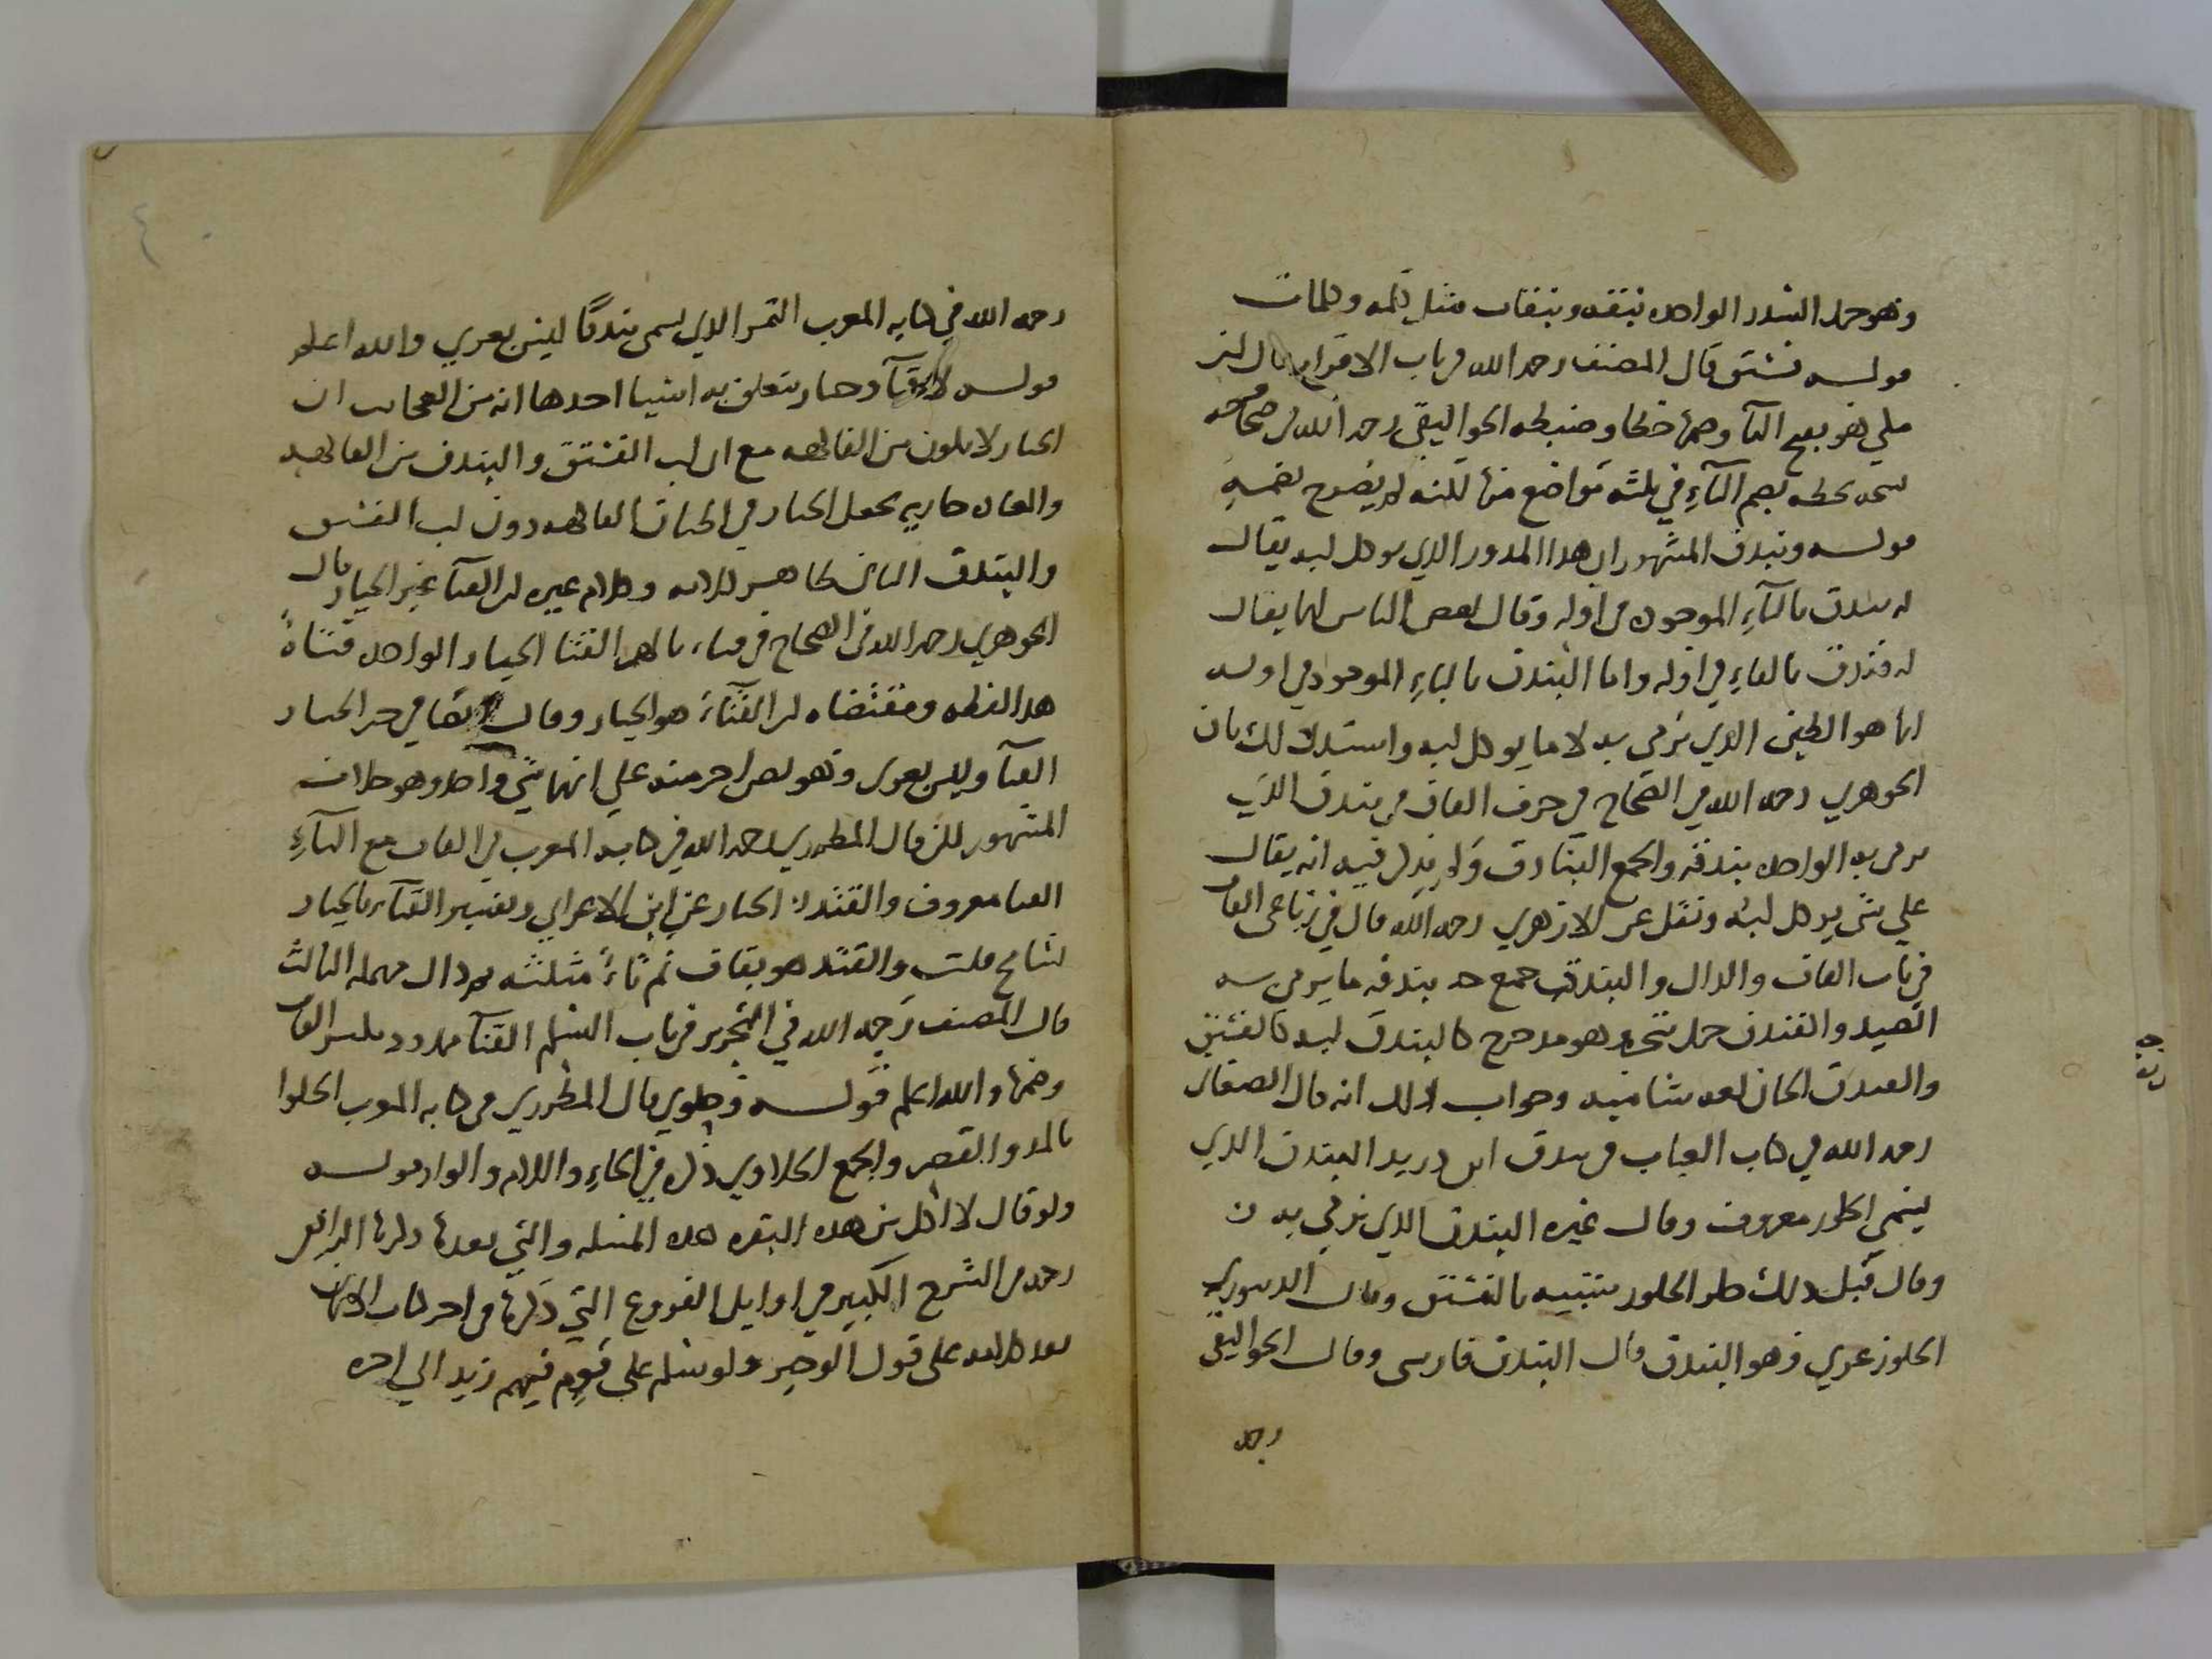 وهو حمل السدر الواحده نبقه ونبقات مثل كلمه وكلمات
قولـه فستق قال المصنف رحمه الله في باب الاقرار قال
هو بفتح التآ وضمها خطا وضبطه الجواليقي رحمه الله في
بخطه بضم التآءِ في ثلثه مواضع منها لكنه لم يصرح بضمه
قولـه وبندق المشهور ان هذا المدور الذي يوكل لبه يقال
له بندق بالبآءِ الموحده في اوله وقال بعض الناس انما يقال
له فندق بالفاءِ في اوله واما البندق بالباءِ الموحده في اوله
انما هو الطين الذي يرمي به لا ما يوكل لبه واستدل لك بان
الجوهري رحمه الله في الصحاح في حرف القاف في بندق الذي
يرمي به الواحده بندقه والجمع البنادق ولم يذكر فيه انه يقال
علي شي يوكل لبه ونقل عن الازهري رحمه الله قال في رباعي القاف
في باب القاف والدال والبندق جمع بندقه ما يرمي به
الصيد والفندق حمل شجره وهو مدحرج كالبندق لبه كالفستق
والفندق الخان لغه شاميه وجواب ذلك انه قال الصغاني
رحمه الله في كتاب العباب في بندق ابن دريد البندق الذي
يسمي الجلوز معروف وقال غيره البندق الذي يرمي به ن
وقال قبل ذلك الجلوز شبيه بالفستق وقال الدينوري
الجلوز عربي وهو البندق قال البندق فارسي وقال الجواليقي
رحمه
٤
رحمه الله في كتابه المعرب الثمر الذي يسمي بندقا ليس بعربي والله اعلم
قولـه لا قثآ وخيار يتعلق به اشيا احدها انه من العجايب ان
الخيار لا يكون من الفاكهه مع ان لب الفستق والبندق من الفاكهه
والعاده جاريه بجعل الخيار في اطباق الفاكهه دون لب الفستق
والبندق الثاني ظاهر كلامه وكلام غيره ان القثآ غير الخيار قال
الجوهري رحمه الله في الصحاح في قثاء بالهمز القثا الخيار الواحده قثاةً
هذا لفظه ومقتضاه ان القثآءَ هو الخيار وقال ايضا في خير الخيار
القثآ وليس بعربي وهو نص اخر منه علي انهما شي واحد وهو خلاف
المشهور لكن قال المطرزي رحمه الله في كتابه المغرب في القاف مع الثآءِ
القثا معروف والقثد الخيار عن ابن الاعرابي وتفسير القثآء بالخيار
تسامح قلت والقثد هو بقاف ثم ثاءٌ مثلثه ودال مهمله الثالث
قال المصنف رَحمه الله في التحرير في باب السلم القثآ ممدود بكسر القاف
وضمها والله اعلم قولـه وحلوي قال المطرزي في كتابه المغرب الحلوا
بالمد والقصر والجمع الحلاوي ذكره في الحاءِ واللام والواو قولـه
ولو قال لا اكل من هذه البقره هذه المسله والتي بعدها ذكرها الرافعي
رحمه في الشرح الكبير في اوايل الفروع التي ذكرها في اخر كتاب الايمان
بعد كلامه علي قول الوجيز ولو سلم علي قوم فيهم زيد الي اخره